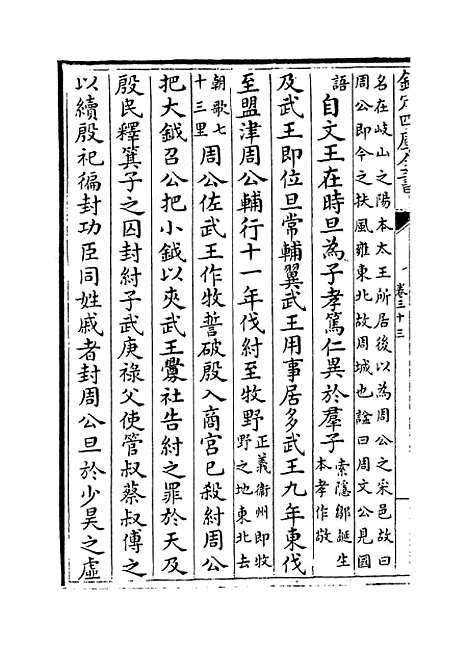 欽定四庫全書
卷三十三
名在岐山之陽本太王所居後以為周公之采邑故曰
周公即今之扶風雍東北故周城也諡曰周文公見國
語自文王在時旦為子孝篤仁異於羣子索隱鄒誕生本孝作敬
及武王即位旦常輔翼武王用事居多武王九年東伐
至盟津周公輔行十一年伐紂至牧野正義衞州即牧野之地東北去
朝歌七十三里周公佐武王作牧誓破殷入商宮已殺紂周公
把大鉞召公把小鉞以夾武王釁社告紂之罪於天及
殷民釋箕子之囚封紂子武庚祿父使管叔蔡叔傅之
以續殷祀徧封功臣同姓戚者封周公旦於少昊之虛